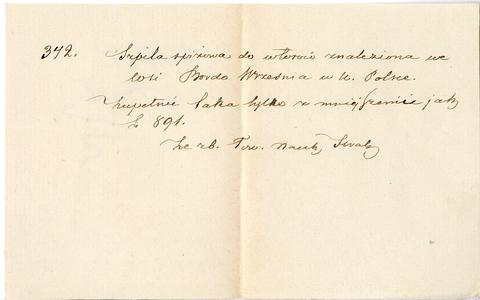 342. Szpila spiżowa do włosów znaleziona we
wsi Bardo Września w K. Polskie.
Zupełnie taka tylko z mniej jak
Ł 891.
Ze zb. Tow. Nauk.